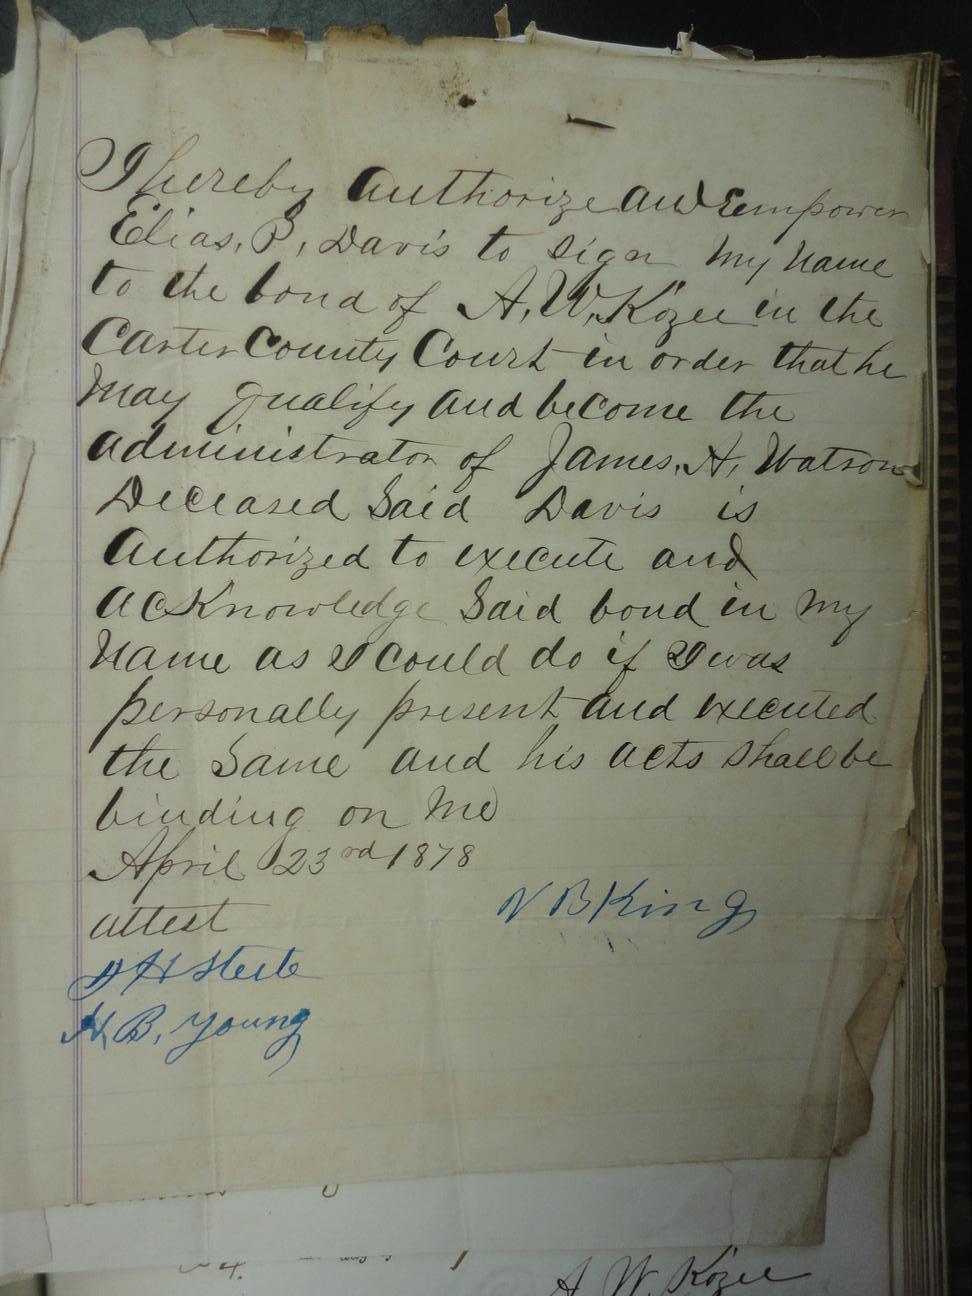 I hereby Authorize and Empower
Elias, P, Davis to Sign My Name
to the bond of A, W, Kozee in the
Carter County Court in order that he
May qualify and become the
administrator of James, A, Watson
Deceased Said Davis is
Authorized to execute and
acKnowledge Said bond in My
Name as I Could do if I was
personally present and executed
the Same and his acts Shall be
binding on Me
April 23rd 1878
attest
N B King
H B, Young
A W Kozee